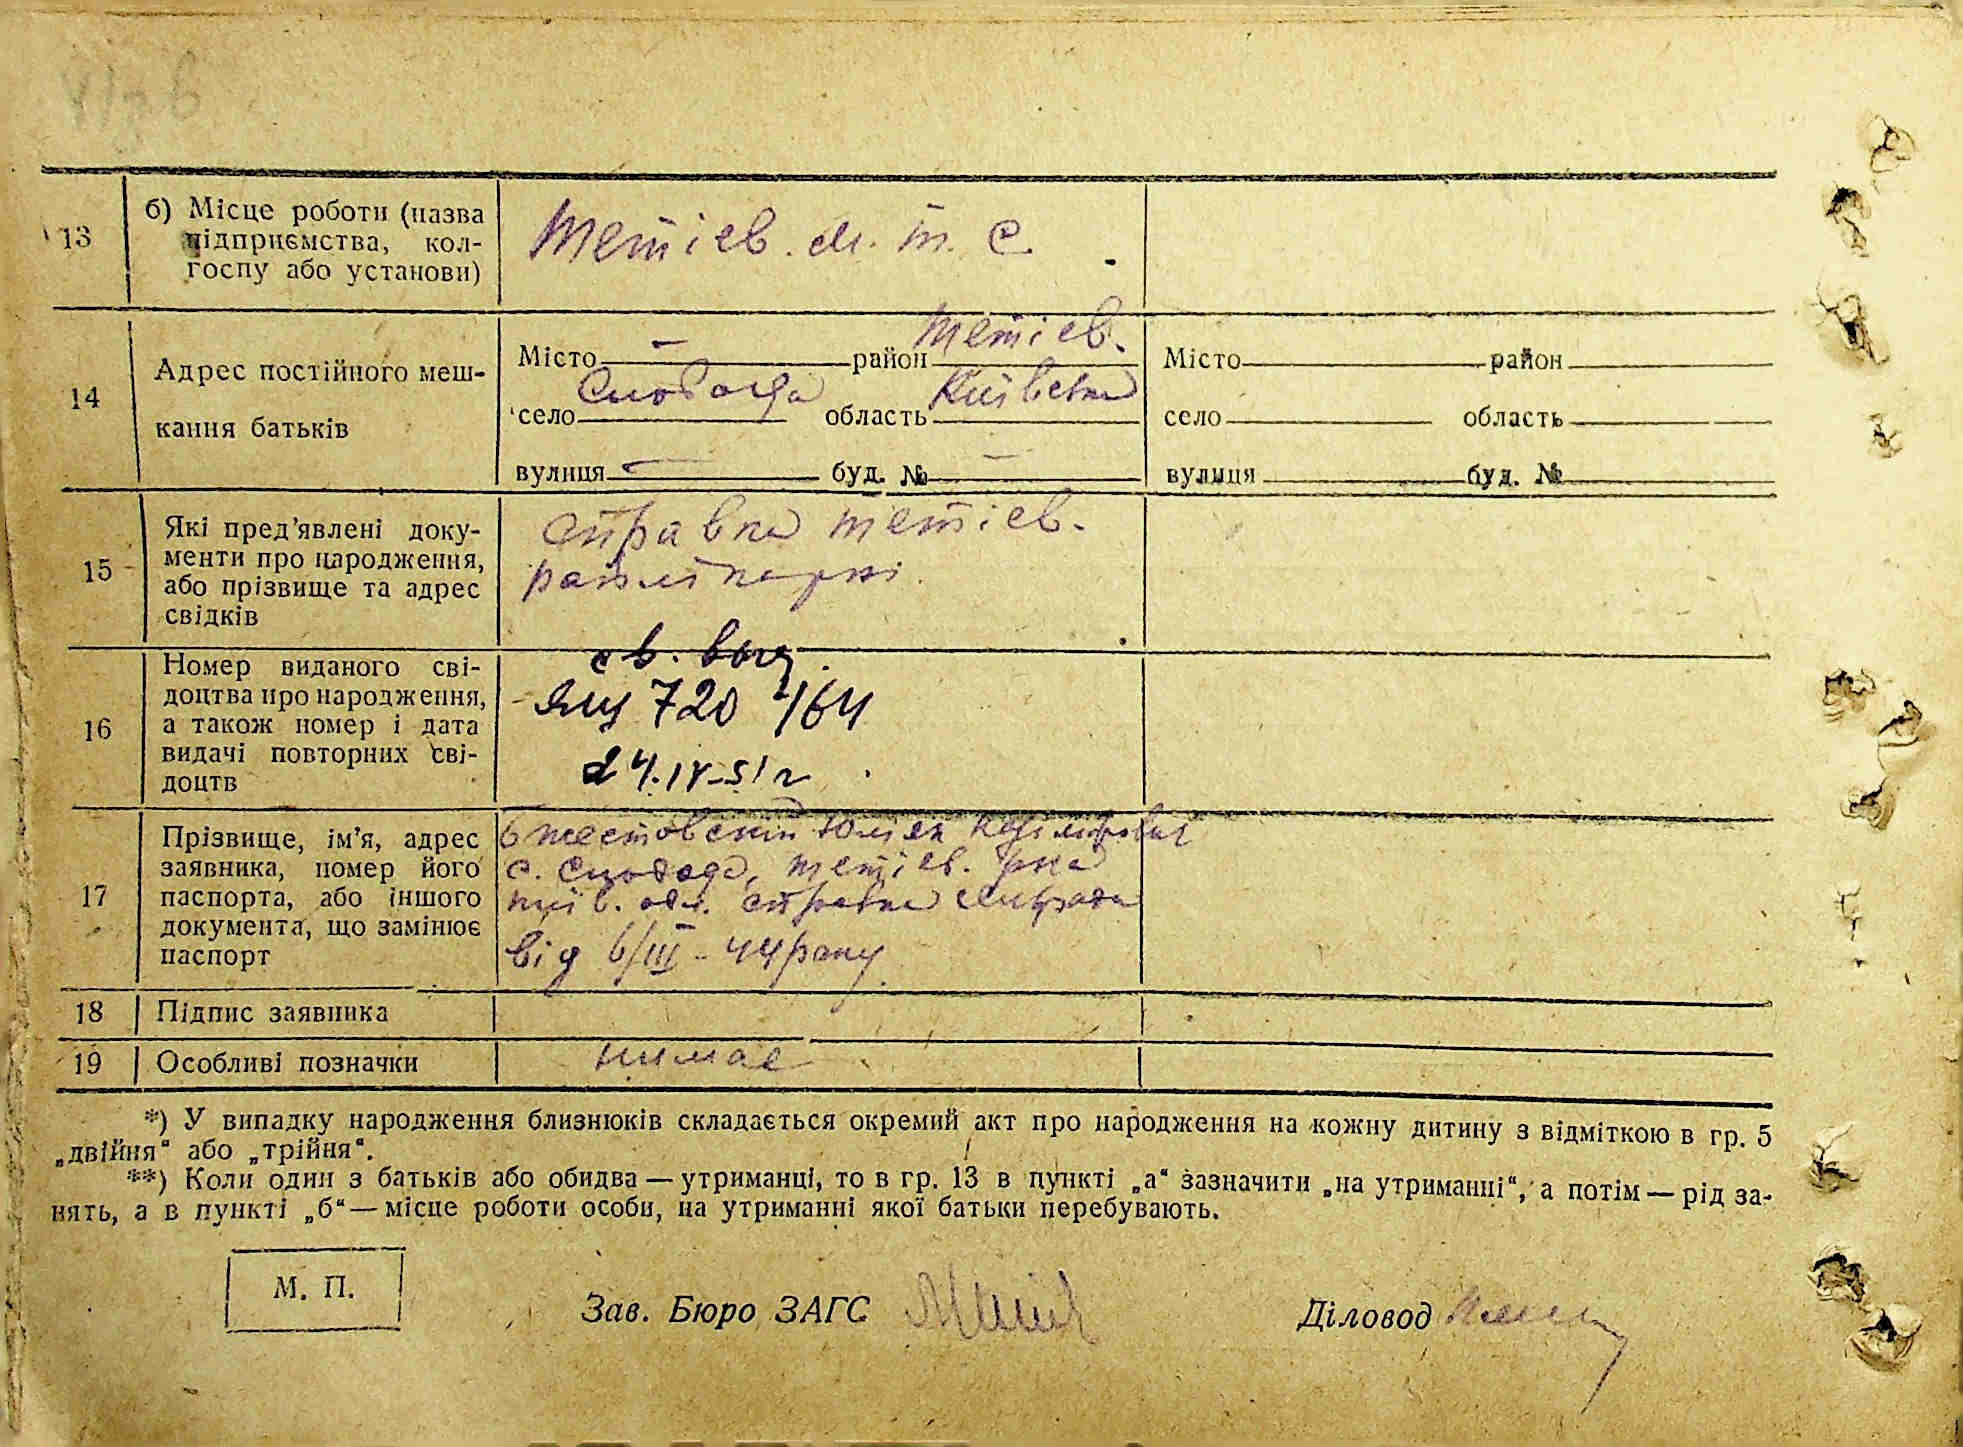 13
б) Місце роботи (назва
підприємства, кол-
госпу або установи)
Тетіев. м. т. с.
14
Адрес постійного меш-
кання батьків
Місто — район Тетіев.
село Слобода область Київська
вулиця — буд. № —
Місто район
село область
вулиця буд. №
15
Які пред’явлені доку-
менти про народження,
або прізвище та адрес
свідків
справка Тетіев.
райлікарні
16
Номер виданого сві-
доцтва про народження,
а також номер і дата
видачі повторних сві-
доцтв
св. выд.
720464
24.IV-51 г
17
Прізвище, ім’я, адрес
заявника, номер його
паспорта, або іншого
документа, що замінює
паспорт
с. Слобода, Тетіев. р-на
київ. обл. справка сільради
від 6/III-44 року
18
Підпис заявника
19
Особливі позначки
нимае
*) У випадку народження близнюків складається окремий акт про народження на кожну дитину з відміткою в гр. 5
„двійня“ або „трійня“.
**) Коли один з батьків або обидва — утриманці, то в гр. 13 в пункті „а“ зазначити „на утриманні“, а потім — рід за-
нять, а в пункті „б“ — місце роботи особи, на утриманні якої батьки перебувають.
М. П.
Зав. Бюро ЗАГС
Діловод